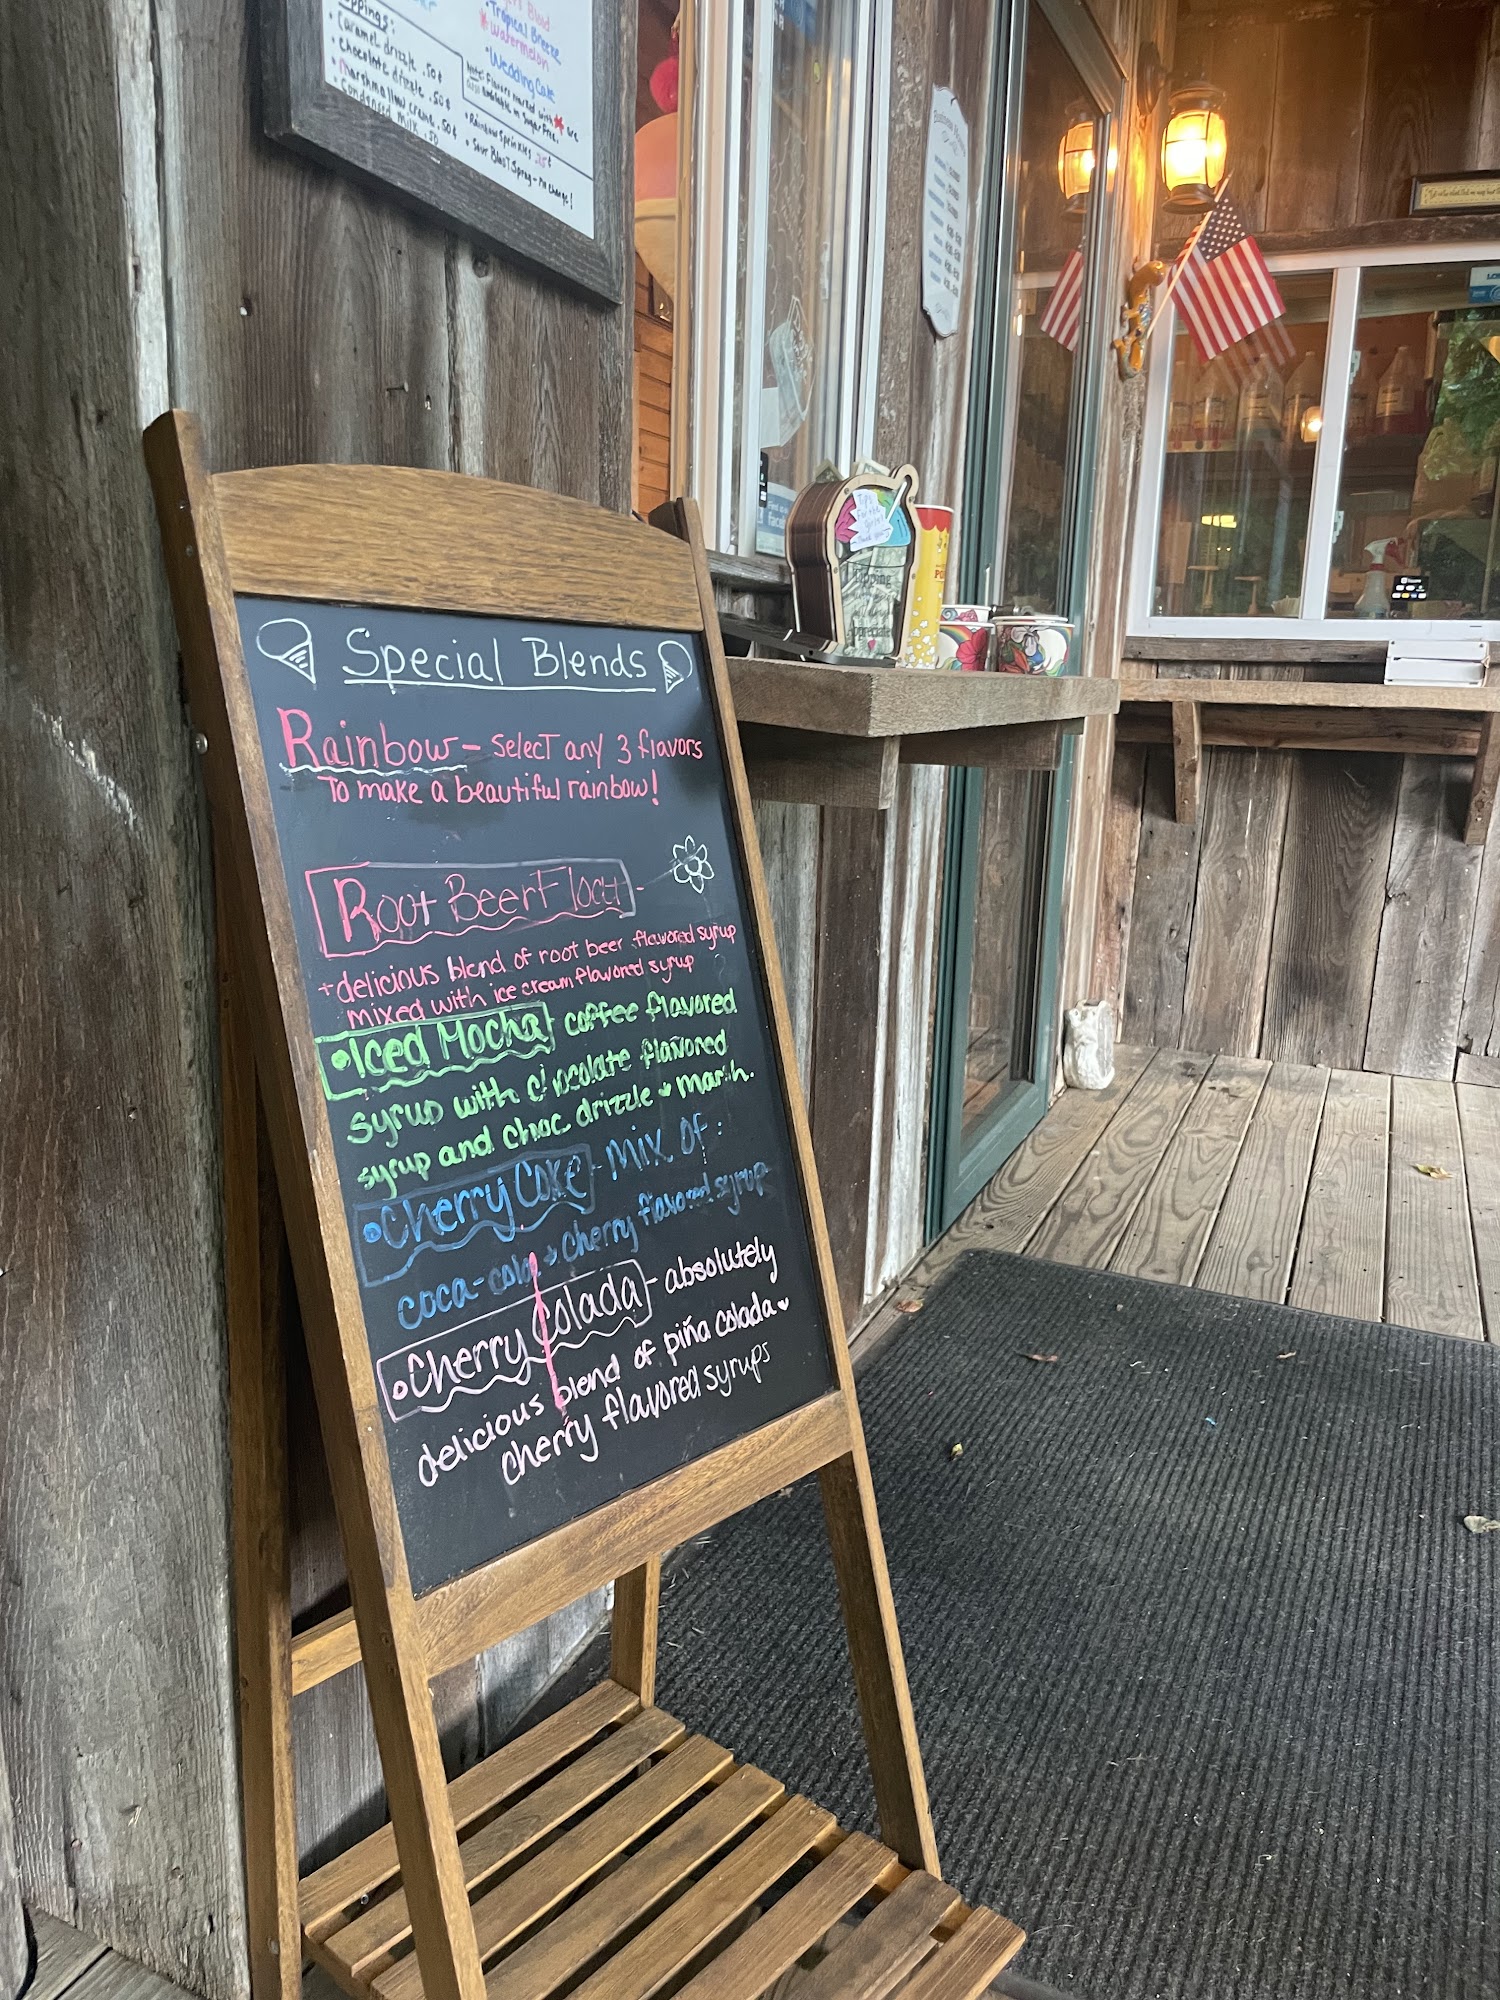 Toppings:
• Caramel drizzle .50¢
• Chocolate drizzle .50¢
• Marshmallow creme .50¢
Condensed milk .50
Blood
• Tropical Breeze
* Watermelon
• Wedding Cake
Note: Flavors marked with * are
also available in Sugar Free.
• Rainbow Sprinkles .25¢
• Sour Blast Spray - no charge!
Business Hours
Tips
for the
girls!
Thank you
Special Blends
Rainbow - select any 3 flavors
To make a beautiful rainbow!
Root Beer Float -
delicious blend of root beer flavored syrup
mixed with ice cream flavored syrup
• Iced Mocha - coffee flavored
syrup with chocolate flavored
syrup and choc drizzle & marsh.
• Cherry Coke - Mix of:
coca-cola & cherry flavored syrup
• Cherry Colada - absolutely
delicious blend of piña colada &
cherry flavored syrups